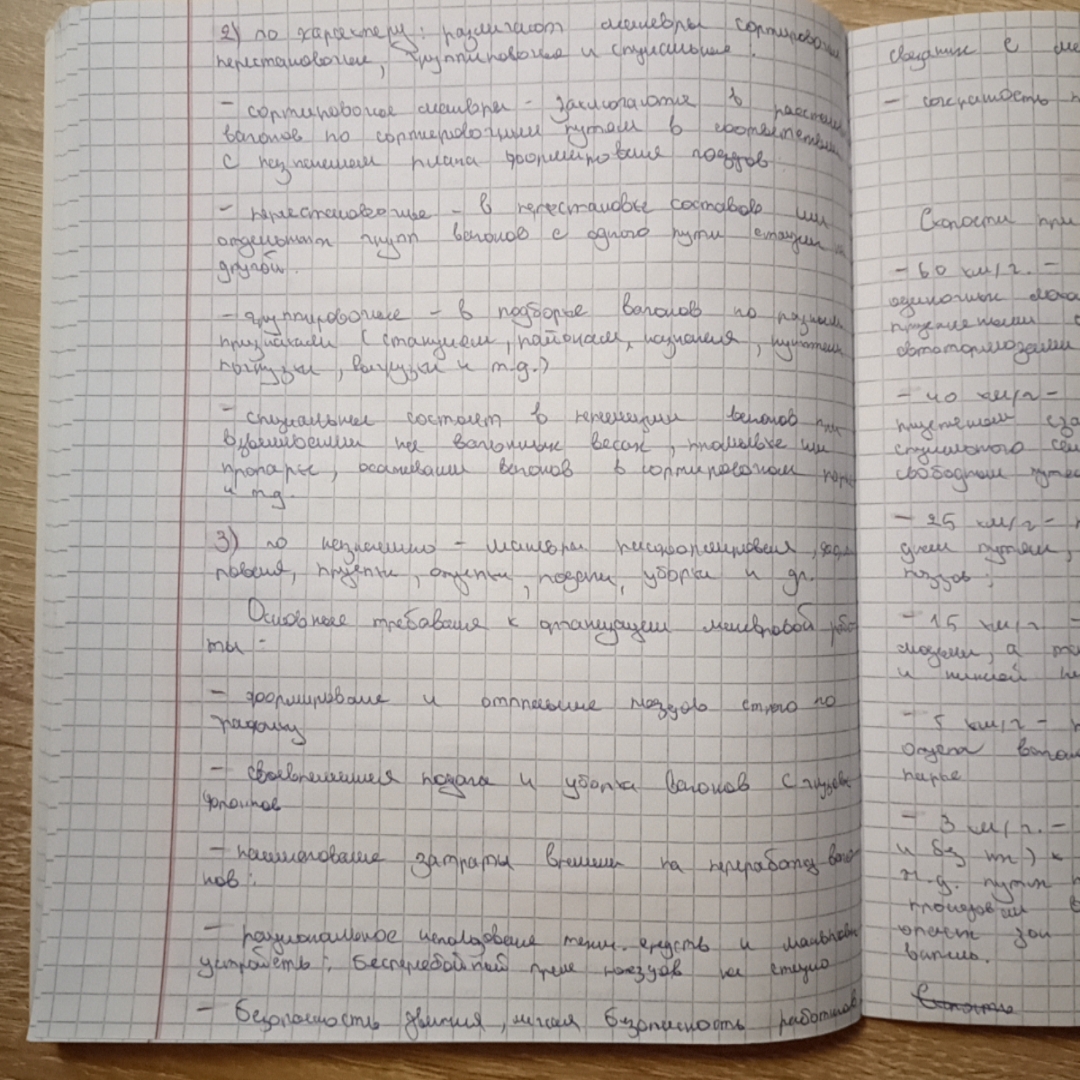 2) по характеру: различают маневры сортировочные
перестановочные, группировочные и специальные.
- сортировочные маневры - заключаются в расстановке
вагонов по сортировочным путям в соответствии
с назначением плана формирования поездов.
- перестановочные - в перестановке составов или
отдельных групп вагонов с одного пути станции на
другой.
- группировочные - в подборке вагонов по разным
признакам (станциям, районам, назначения, пунктам
погрузки, выгрузки и т.д.)
- специальные состоят в перемещении вагонов при
взвешивании на вагонных весах, промывке или
пропарке, осаживании вагонов в сортировочном парке
и т.д.
3) по назначению - маневры расформирования, форми
рования, прицепки, отцепки, подачи, уборки и др.
Основные требования к организации маневровой рабо
ты:
- формирование и отправление поездов строго по
графику
- своевременная подача и уборка вагонов с грузов
фронтов
- наименование затраты времени на переработку ваго
нов.
- рациональное использование технич. средств и маневров
устройств; бесперебойный прием поездов на станцию
- безопасность движения, личная безопасность работников
сведания с
- сохранность
Скорости при
- 60 км/г. -
одиночных
автотормозами
- 40 км/г -
специального
свободным
- 25 км/г -
поездов;
- 15 км/г -
людьми, а
и
- 5 км/г -
отцепа вагонов
парке
- 3 км/г. -
и без
т.д. путям